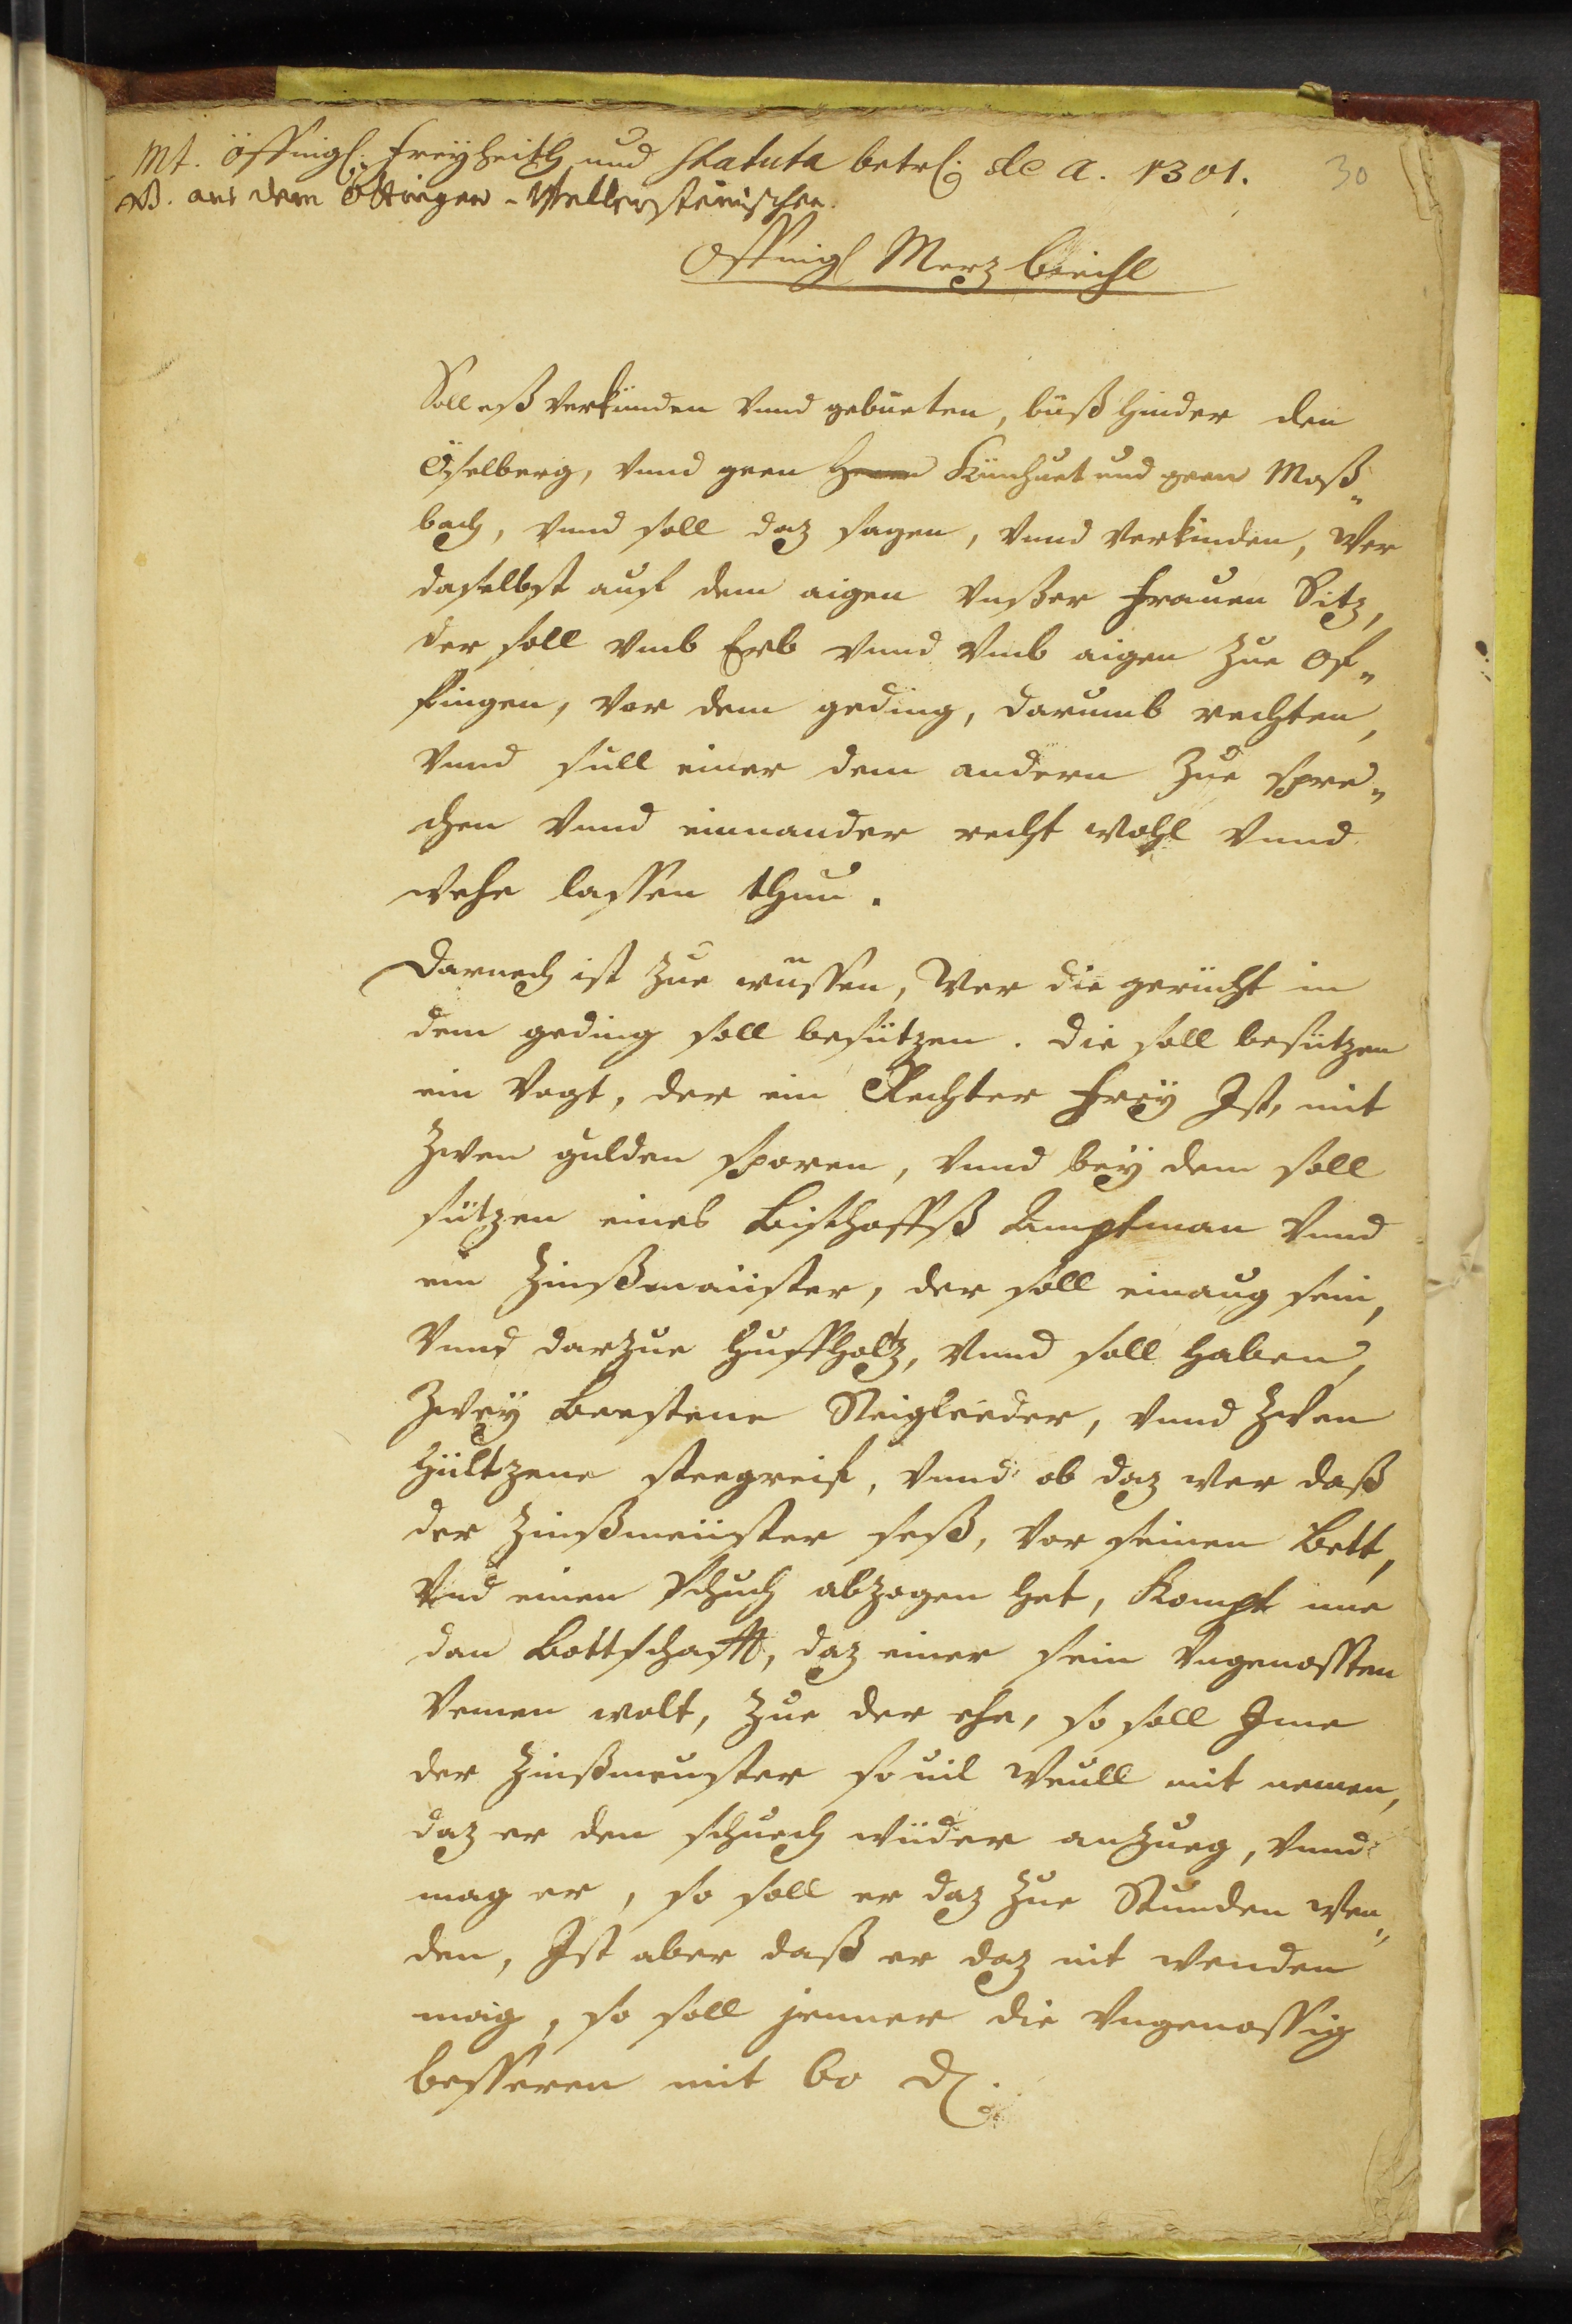 Mt. Öffingl. Freyheith und Statuta betrl. de a. 1301. 30
NB. aus dem Öttingen-Wallersteinischen.
Offingl Merz biechl
Soll eß verkünden vnnd gebüeten, büß hinder den
Eyselberg, vnnd geen Künhuet und geen Moß„
bach, vnnd soll daz sagen, vnnd verkinden, Wer
daselbst auf dem aigen vnßer Frauen Sitz,
der soll vmb Erb vnnd vmb aigen zue Of„
fingen, vor dem geding, darumb rechten,
vnnd sull einer dem andern zue spre„
chen vnnd einnander recht wohl vnnd
wehe lassen thun.
Darnach ist zue wussen, Wer die gerücht in
dem geding soll besützen. Die soll besützen
ein Vogt, der ein Rechter Frey Ist, mit
zwen gulden sporen, vnnd bey dem soll
sützen eines Bischoffß Ampfman vnnd
ein Zinßmaiister, der soll einaug sein,
vnnd darzue Huffholtz, vnnd soll haben,
zwey Beestene Steigleeder, vnnd zwen
hültzene steegreif, vnnd ob daz wer daß
der Zinßmeiister seß, vor seinen Bett,
vnd einen Schuch abzogen het, Kompt ime
dan Bottschafft, daz einer sein vngenossten
Nemen wolt, zue der ehe, so soll Ime
der Zinßmeuster so uil Weull mit nemen,
daz er den schuech wüder anzueg, vnnd
mag er, so soll er daz zue Stunden wen„
den, Ist aber daß er daz nit wenden
maig, so soll jenner die vngenossig
besseren mit 60 d.